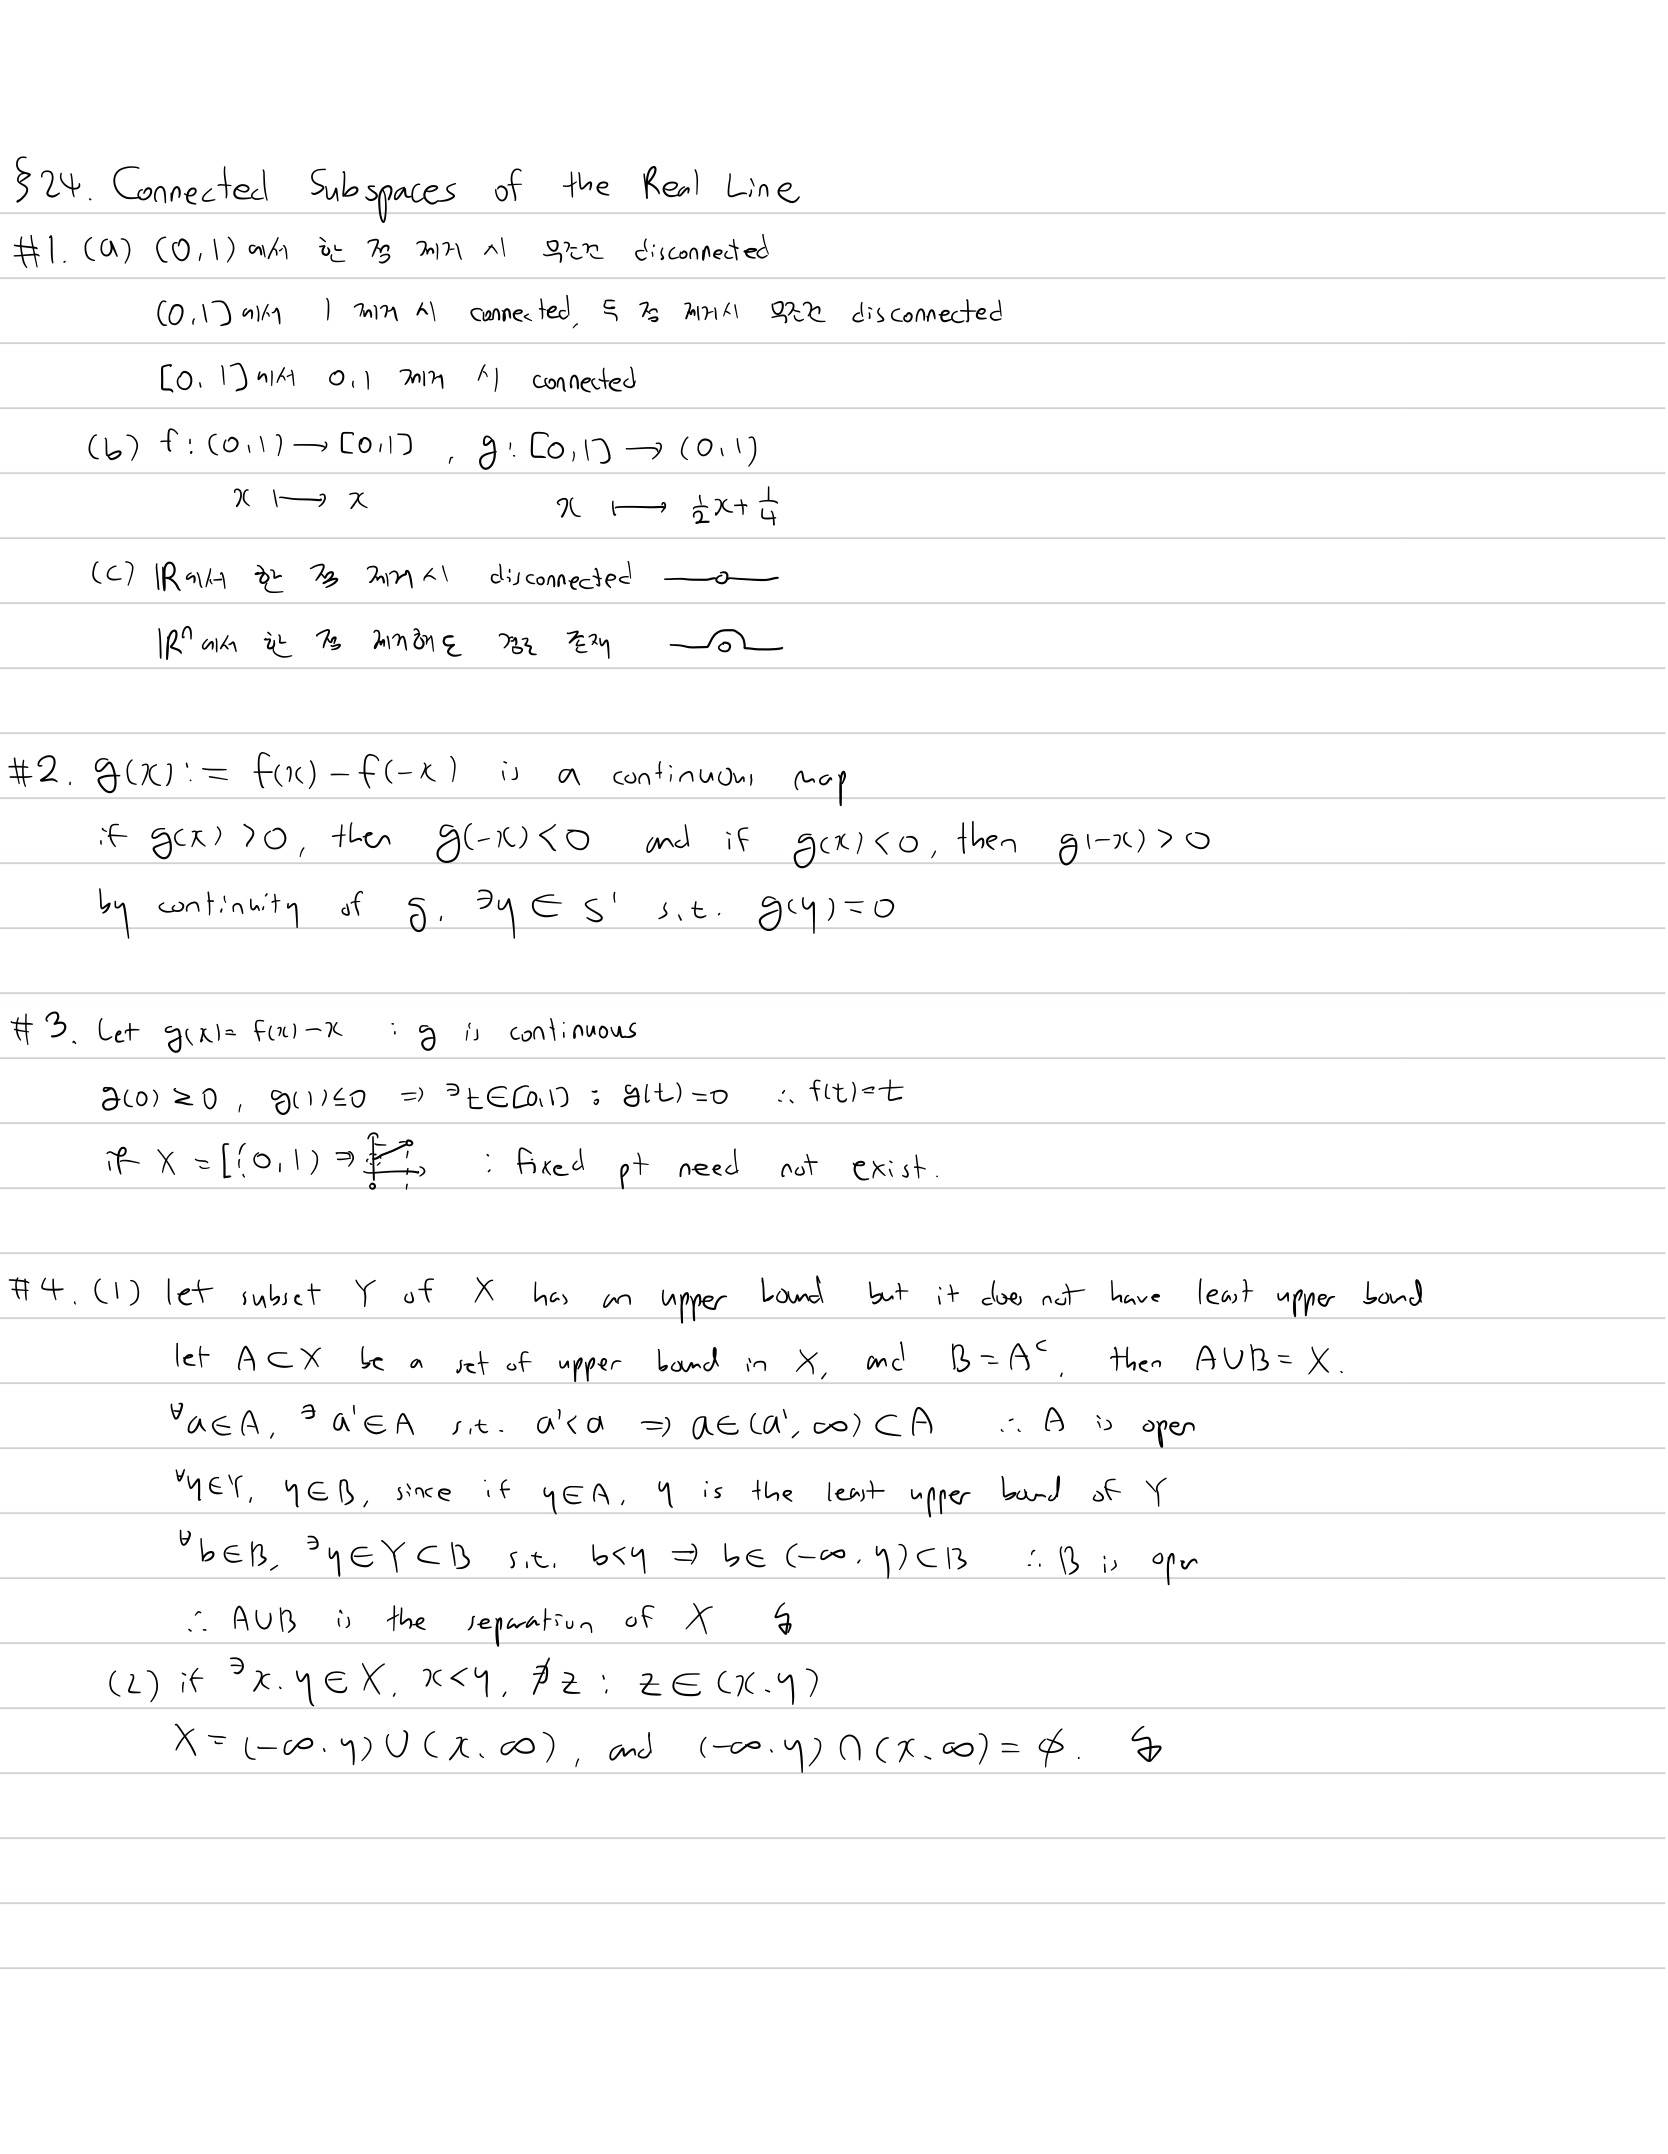 §24. Connected Subspaces of the Real Line
#1. (a) (0,1)에서 한 점 제거 시 무조건 disconnected
(0,1]에서 1 제거 시 connected, 두 점 제거시 무조건 disconnected
[0,1]에서 0,1 제거 시 connected
(b) f:(0,1)→[0,1], g:[0,1]→(0,1)
x ↦ x x ↦ 1/2x+1/4
(c) ℝ에서 한 점 제거 시 disconnected
ℝⁿ에서 한 점 제거해도 경로 존재
#2. g(x):= f(x)-f(-x) is a continuous map
if g(x)>0, then g(-x)<0 and if g(x)<0, then g(-x)>0
by continuity of g, ∃y∈S¹ s.t. g(y)=0
#3. Let g(x)= f(x)-x : g is continuous
g(0)≥0, g(1)≤0 ⇒ ∃t∈[0,1] : g(t)=0 ∴ f(t)=t
if X = [(0,1) ⇒ : fixed pt need not exist.
#4. (1) let subset Y of X has an upper bound but it does not have least upper bond
let A⊂X be a set of upper bound in X, and B=Aᶜ, then A∪B=X.
∀a∈A, ∃a'∈A s.t. a'<a ⇒ a∈(a',∞)⊂A ∴ A is open
∀y∈Y, y∈B, since if y∈A, y is the least upper bound of Y
∀b∈B, ∃y∈Y⊂B s.t. b<y ⇒ b∈(-∞,y)⊂B ∴ B is open
∴ A∪B is the separation of X ↯
(2) if ∃x,y∈X, x<y, ∄z : z∈(x,y)
X=(-∞,y)∪(x,∞), and (-∞,y)∩(x,∞)=∅. ↯